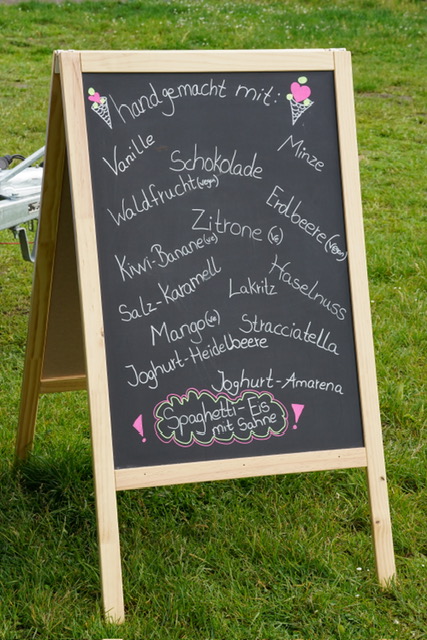 handgemacht mit:
Vanille
Minze
Schokolade
Waldfrucht (vegan)
Erdbeere (vegan)
Zitrone (ve)
Kiwi-Banane (ve)
Haselnuss
Salz-Karamell
Lakritz
Mango (ve)
Stracciatella
Joghurt-Heidelbeere
Joghurt-Amarena
! Spaghetti-Eis !
mit Sahne